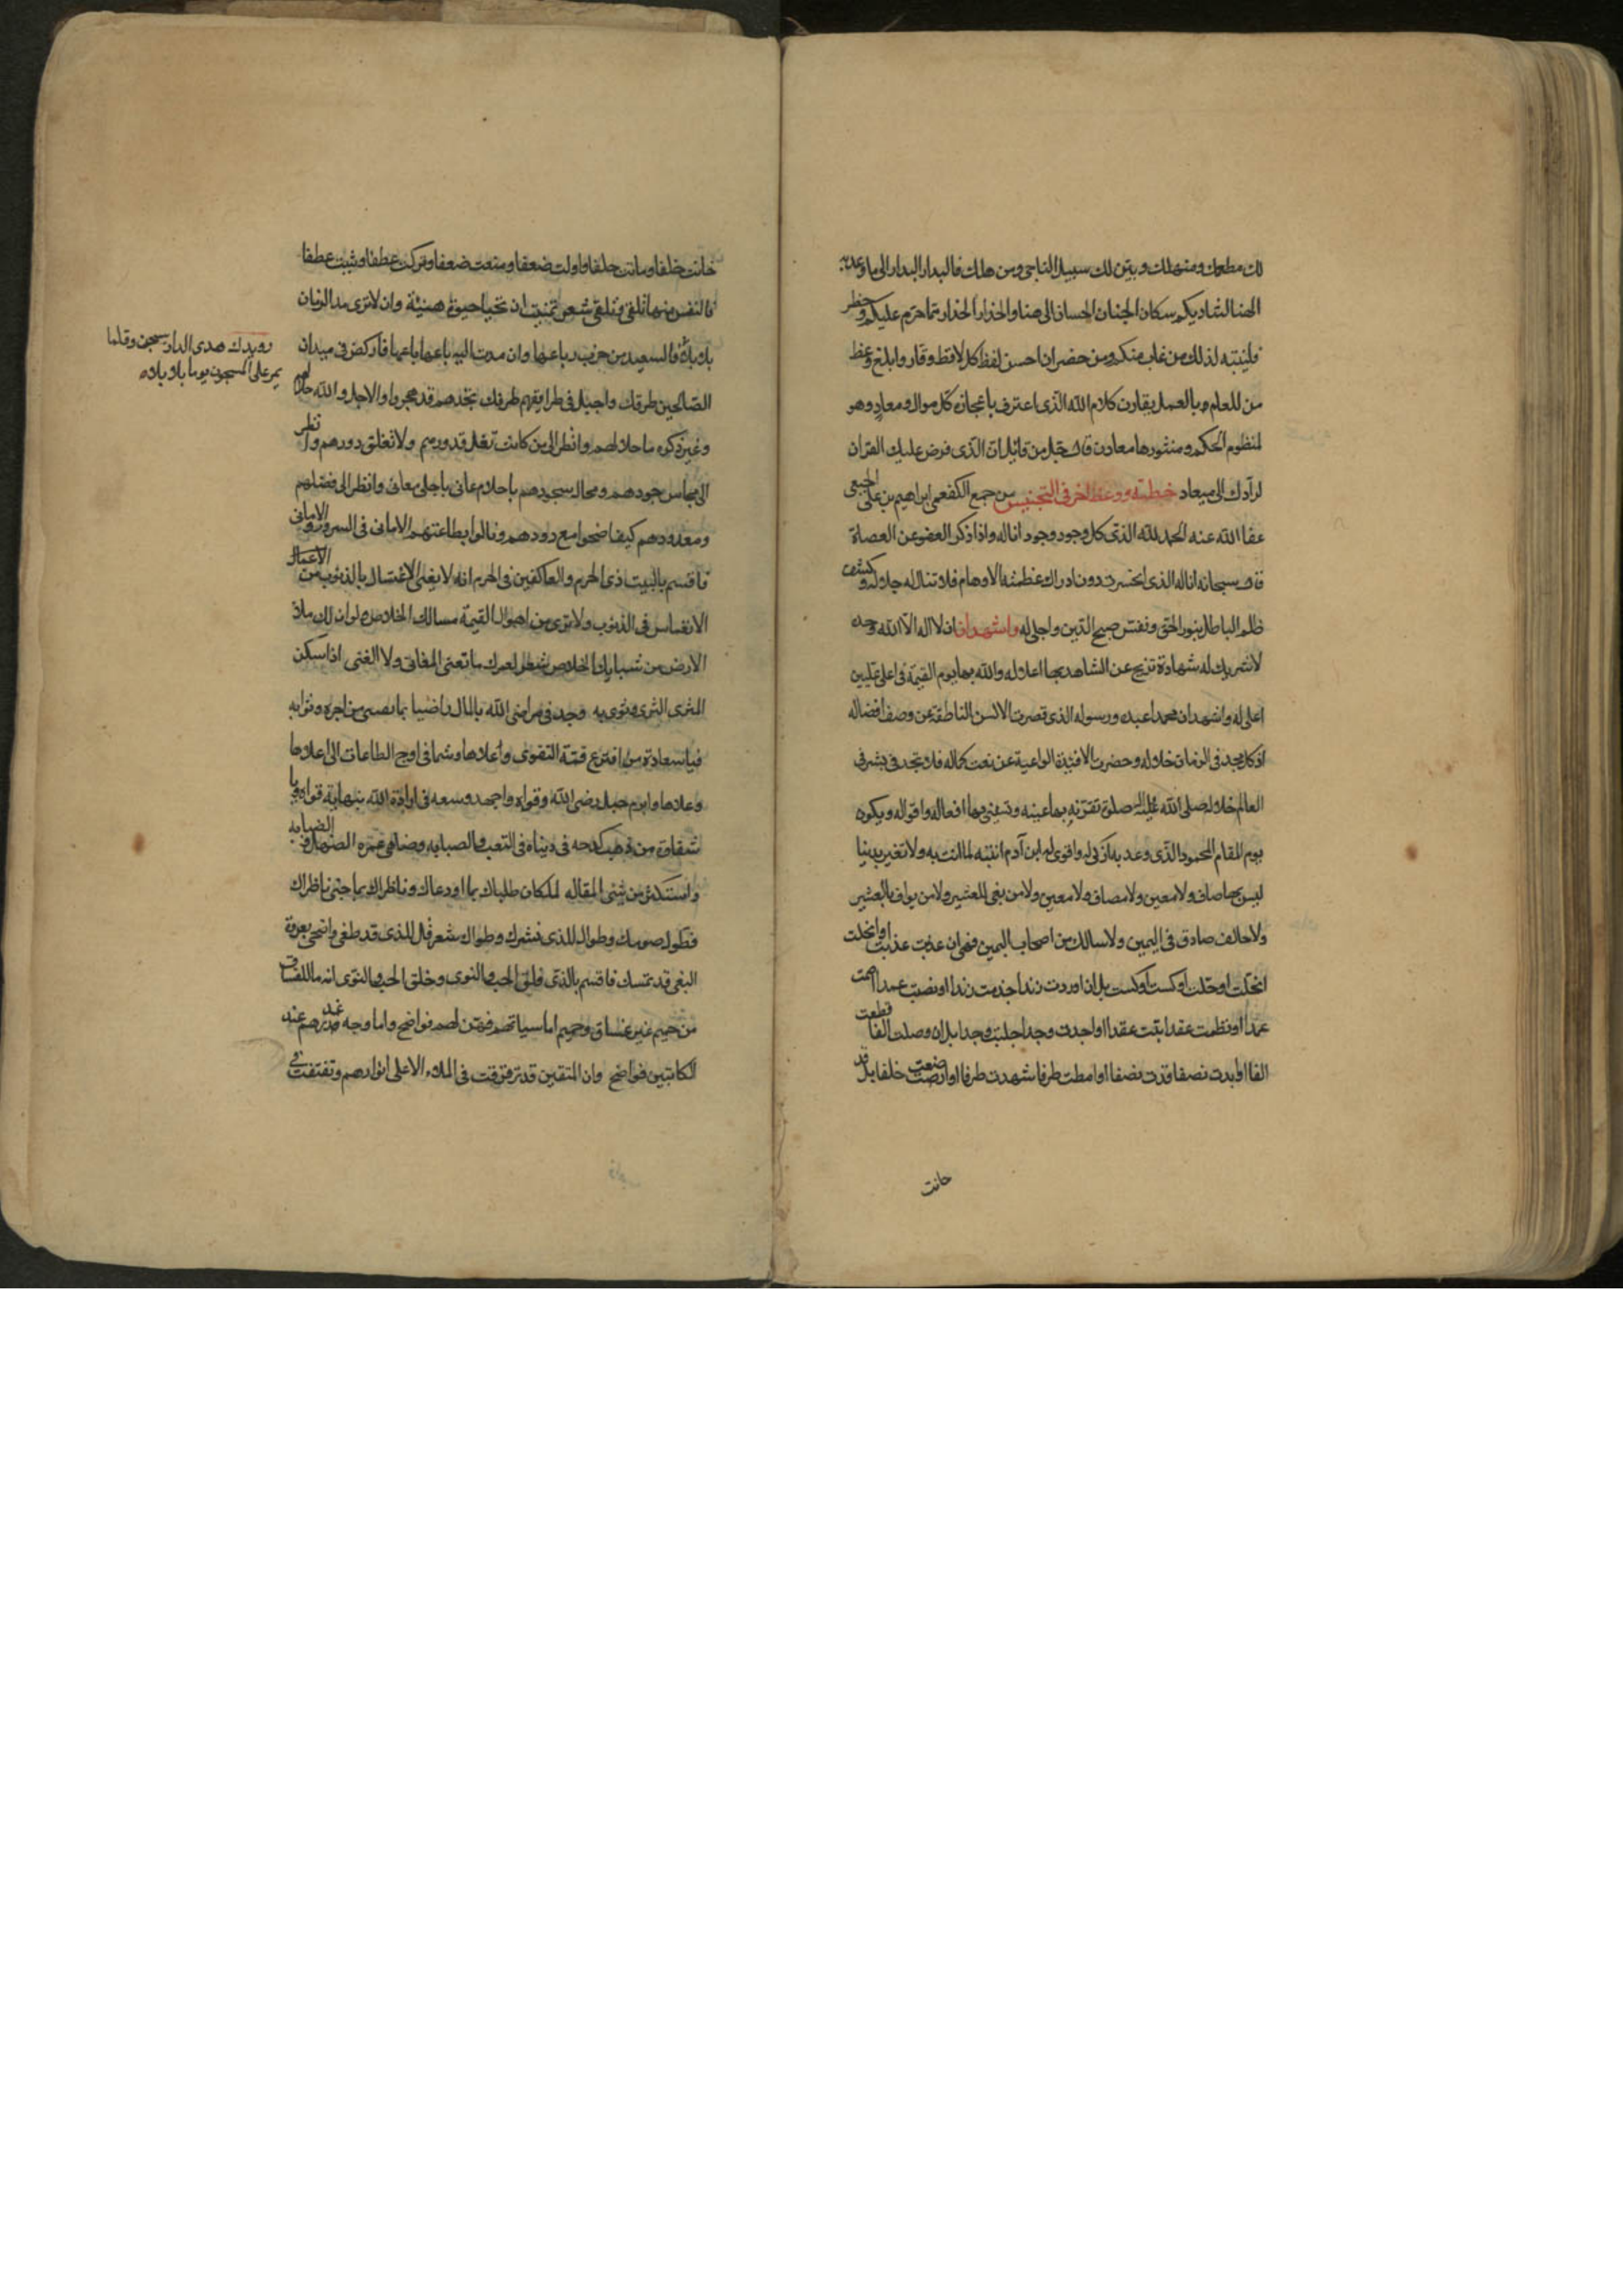 لك مطعمك ومنهلك وبين لك سبيل الناجى ومن هلك فالبدار البدار الى ما وعدتم
الهنا لشاديكم سكان الجنان الحسان الى هنا والحذار الحذار مما حرم عليكم وحظر
فلينتبه لذلك من غاب منكم ومن حضر ان احسن لفظ كل لافظ وقار وابلغ وعظ
من للعلم وبالعمل يقارن كلام الله الذى اعترف باعجازه كل موال ومعاد وهو
لمنظوم الحكم ومنثورها معادن قال جل من قائل ان الذى فرض عليك القران
لرادك الى ميعاد خطبة ووعظ اخر فى التجنيس من جمع الكفعمى ابراهيم بن على الجبعى
عفا الله عنه الحمد لله الذى كل وجود وجود اناله واذا ذكر العفو عن العصاة
قال سبحانه اناله الذى انحسرت دون ادراك عظمته الاوهام فلا تناله جلاله وكشف
ظلم الباطل بنور الحق ونفس صبح الدين واجلى له واشهد ان لا اله الا الله وحده
لا شريك له شهادة تزيح عن الشاهد بها اعلاله والله بها يوم القيمة فى اعلى عليين
اعلى له واشهد ان محمدا عبده ورسوله الذى قصرت الالسن الناطقة عن وصف افضاله
اذ كل مجد فى الزمان خلاله وحضرت الافئدة الواعية عن نعت كماله فلا تجد فى بشر فى
العالم خلاله صلى الله عليه صلوة تقر بها عينه وتسنى بها افعاله واقواله ويكون
يوم المقام المحمود الذى وعد به ازكى له واقوى له ابن آدم انتبه لما انت به ولا تغتر بدنيا
ليس بها صاف ولا معين ولا مصاف ولا معين ولا من يفى للعشير ولا من يواف بالعشير
ولا حالف صادق فى اليمين ولا سالك من اصحاب اليمين فهى ان عذبت عذبت او انحلت
انحلت او حلت اوكست اوكست بل ان اوردت زندا جذمت زندا او نصبت عمدا امت
عمدا او نظمت عقدا ابتت عقدا او اجدت وجدا جلبت وجدا بل ان وصلت الفا قطعت
الفا او ابدت نصفا قدت نصفا او امطت طرفا شهدت طرفا او ارضعت خلفا بل قد
خانت
خانت خلفا وماتت حلفا او اولت ضعفا ومنعت ضعفا وتركت عطفا وثبت عطفا
فالنفس منها تلقى وتلقى شعر تمنيت ان تحيا حيوة هنيئة وان لا ترى مد الزمان
بلابلا فالسعيد من جنب رباعها وان مدت اليه باعها باعها فاركض فى ميدان
رويدك هذى الدار سجن وقلما
يمر على المسجون يوما بلا بلاه
الصالحين طرفك واجل فى طرايقهم طرفك تجدهم قد هجروا والاجل والله حلا لهم
وغير ذكره ما حلا لهم وانظر الى من كانت تغل قدورهم ولا تغلق دورهم وانظر
الى مجالس جودهم ومحال سجودهم باحلام عانى باجلى معانى وانظر الى فضلهم
ومعدودهم كيف اضحوا مع دودهم ونالوا بطاعتهم الامانى فى السر والامانى
فاقسم بالبيت ذى الحرم والعاكفين فى الحرم انه لا يغنى الاغتسال بالذنوب من الاعمال
الانغماس فى الذنوب ولا ترى من اهوال القيمة مسالك الخلاص ولو ان لك ملاء
الارض من شبايك الخلاص شعر لعمرك ما تغنى المغانى ولا الغنى اذا سكن
المثرى الثرى وثوى به وجد فى مراضى الله بالمال راضيا بما نصبى من اجره وثوابه
فيا سعادة من افترع قنة التقوى واعلاها وشما فى اوج الطاعات الى اعلاها
وعلاها وابرم حبل رضى الله وقواه واجهد وسعه فى ارادة الله بنهاية قواه ويا
شقاوة من ذهب كدحه فى ديناه فى التعب والصبابه وضاقى عمره الضباب
واستكثر من شنى المقاله لمكان طلباك بما اودعاك وناظراك بما جنى ناظراك
فطول صومك وطوال للذى نشرك وطواك شعر فل للذى قد طغى واضحى بعروة
البغى قد تمسك فاقسم بالذى فلق الحب والنوى وخلق الحب والنوى انه ما للفساق
من حميم غير غساق وحميم اما سياتهم فهن لهم فواضح واما وجه عذرهم عند
الكاتبين فواضح وان المتقين قد ترقرقت فى الملاء الاعلى انوارهم وتفتقت فى